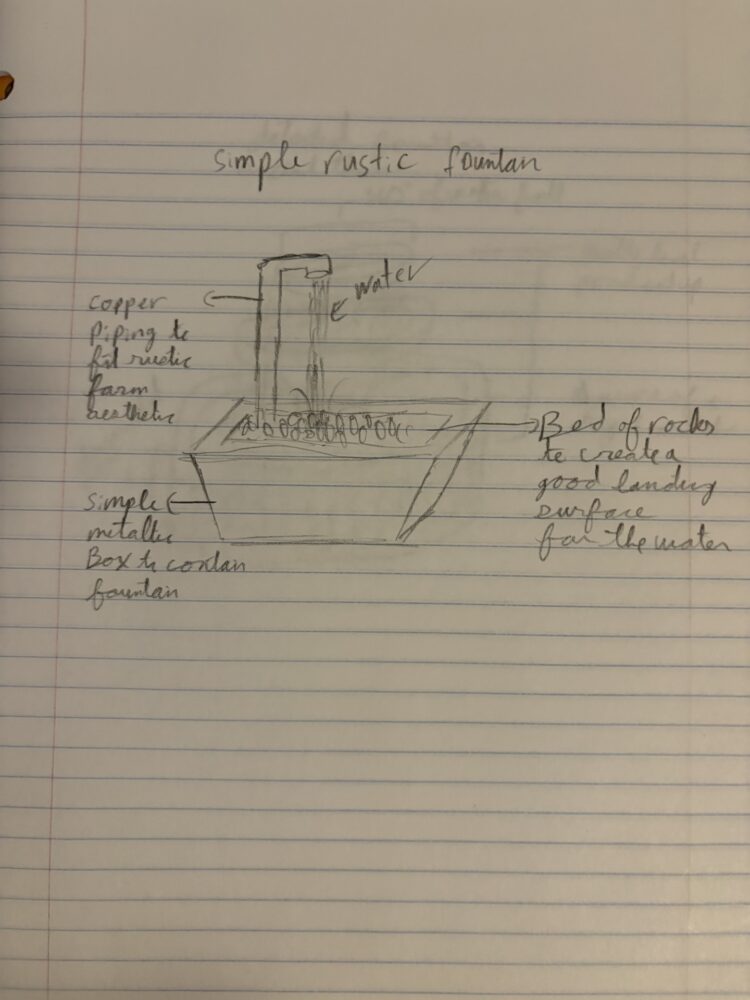 simple rustic fountan
water
copper
piping to
fit rustic
farm
aesthetic
Bed of rocks
to create a
good landing
surface
for the water
simple
metallic
Box to contan
fountan